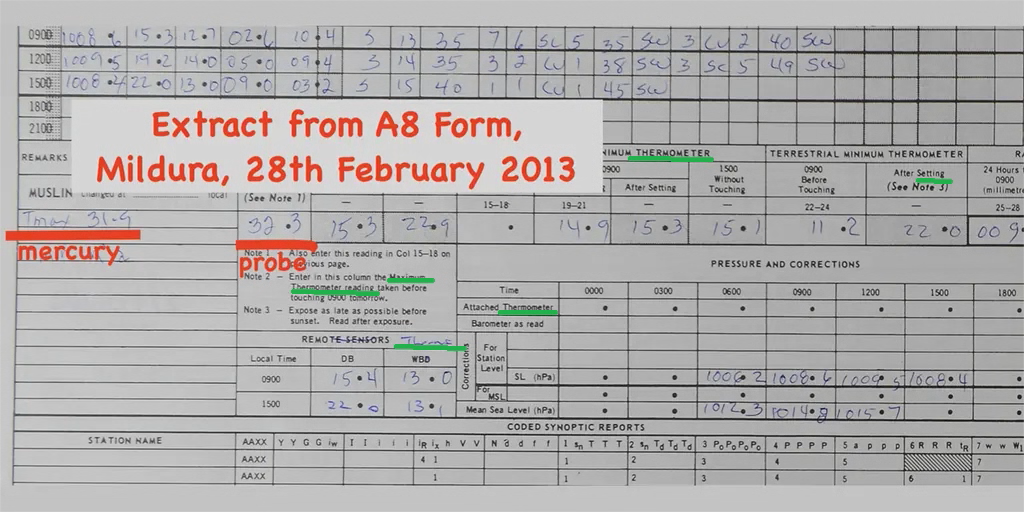 0900 1008.6 15.3 12.7 02.6 10.4 S 13 35 7 6 Sc 5 35 SW 3 Cu 2 40 SW
1200 1009.5 19.2 14.0 05.0 09.4 S 14 35 3 2 Cu 1 38 SW 3 Sc 5 49 SW
1500 1008.4 22.0 13.0 09.0 03.2 S 15 40 1 1 Cu 1 45 SW
1800
2100
Extract from A8 Form,
Mildura, 28th February 2013
REMARKS NIMUM THERMOMETER TERRESTRIAL MINIMUM THERMOMETER
0900 1500 0900 24 Hours
Without Before After Setting 0900
MUSLIN changed at local (See Note 1) After Setting Touching Touching (See Note 3) (millimetre
— — 15-18 19-21 — — 22-24 — 25-28
Tmax 31.9 32.3 15.3 22.9 . 14.9 15.3 15.1 11.2 22.0 009.
mercury
probe
Note 1 — Also enter this reading in Col 15-18 on
previous page.
Note 2 — Enter in this column the Maximum
Thermometer reading taken before
touching 0900 tomorrow.
Note 3 — Expose as late as possible before
sunset. Read after exposure.
PRESSURE AND CORRECTIONS
Time 0000 0300 0600 0900 1200 1500 1800
Attached Thermometer
Barometer as read
REMOTE SENSORS
Local Time DB WBD
0900 15.4 13.0
1500 22.0 13.1
Corrections
For
Station
Level
SL (hPa) 1006.2 1008.6 1009.5 1008.4
For
MSL
Mean Sea Level (hPa) 1012.3 1014.8 1015.7
CODED SYNOPTIC REPORTS
STATION NAME AAXX Y Y G G iw I I i i i iR ix h V V N d d f f 1 sn T T T 2 sn Td Td Td 3 Po Po Po Po 4 P P P P 5 a p p p 6 R R R tR 7 w w W1
AAXX 4 1 1 2 3 4 5 7
AAXX 1 1 2 3 4 5 6 1 7